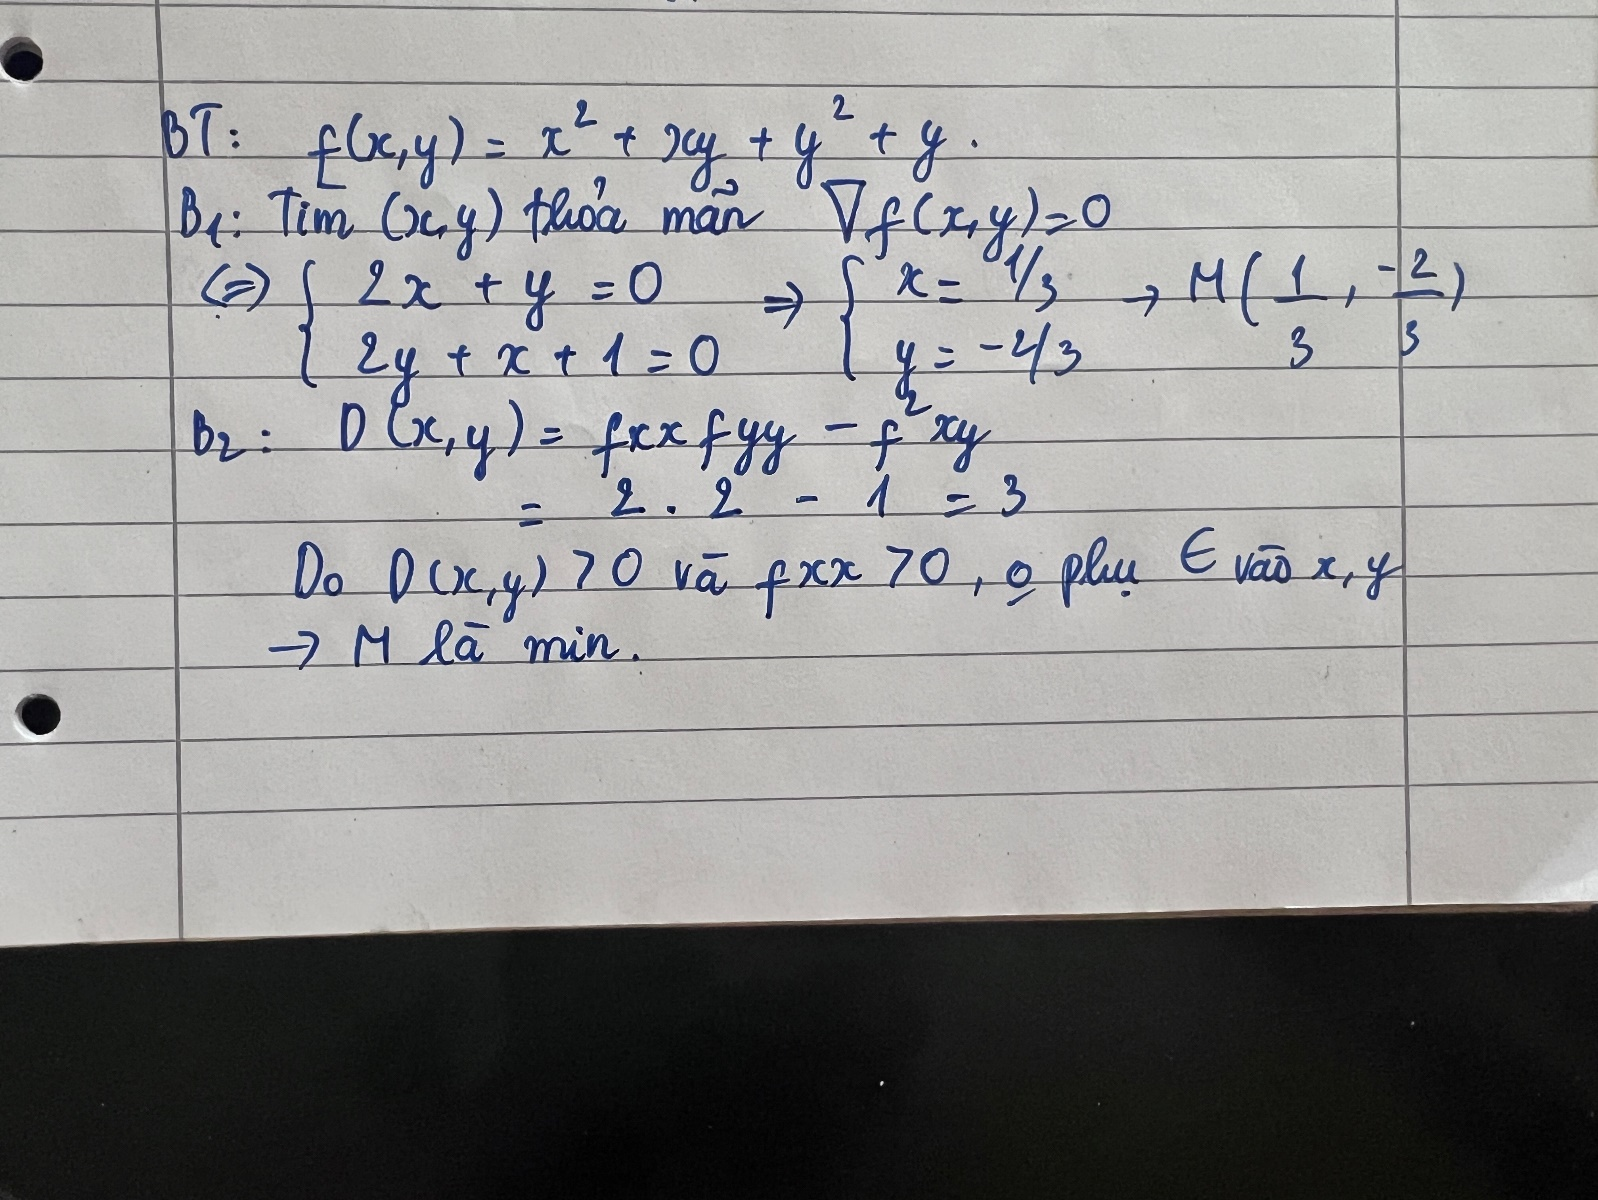 BT: f(x,y) = x² + xy + y² + y.
B₁: Tìm (x,y) thỏa mãn ∇f(x,y)=0
(=) { 2x + y = 0 ⇒ { x = 1/3 → M(1/3, -2/3)
2y + x + 1 = 0 y = -2/3
B₂: D(x,y) = fxx fyy - f²xy
= 2. 2 - 1 = 3
Do D(x,y) >0 và fxx >0, o phụ ∈ vào x, y
→ M là min.